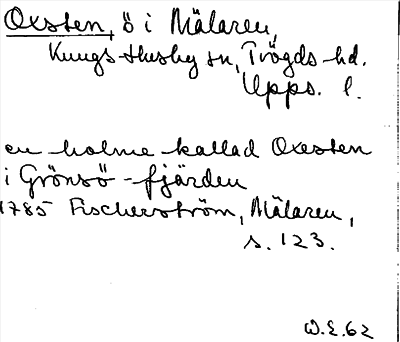 Oxsten, ö i Mälaren,
Kungs-Husby sn, Trögds hd.
Upps. l.
en holme kallad Oxesten
i Grönsö-fjärden
1785 Fischerström, Mälaren,
s. 123.
W.E. 62